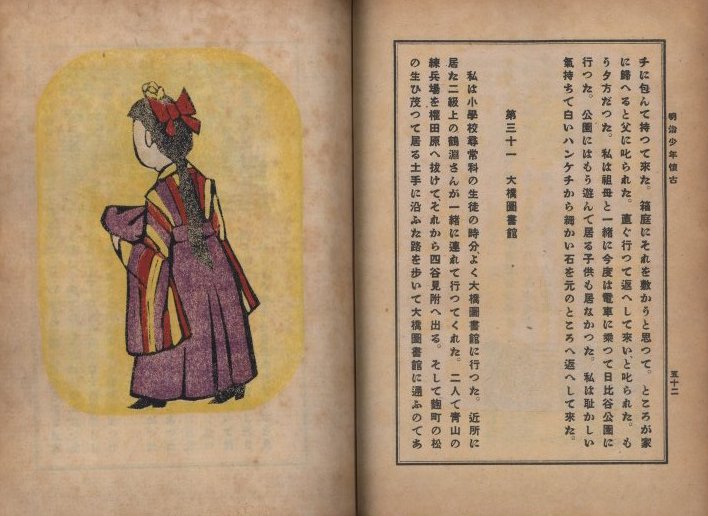 明治少年懷古
五十二
チに包んで持つて來た。箱庭にそれを敷かうと思つて。ところが家
に歸へると父に叱られた。直ぐ行つて返へして來いと叱られた。も
う夕方だつた。私は祖母と一緒に今度は電車に乘つて日比谷公園に
行つた。公園にはもう遊んで居る子供も居なかつた。私は恥かしい
氣持ちで白いハンケチから細かい石を元のところへ返へして來た。
第三十一　大橋圖書館
私は小學校尋常科の生徒の時分、よく大橋圖書館に行つた。近所に
居た二級上の鶴淵さんが一緒に連れて行つてくれた。二人で靑山の
練兵場を權田原へ拔けて、それから四谷見附へ出る。そして麴町の松
の生ひ茂つて居る土手に沿ふた路を歩いて大橋圖書館に通ふのであ